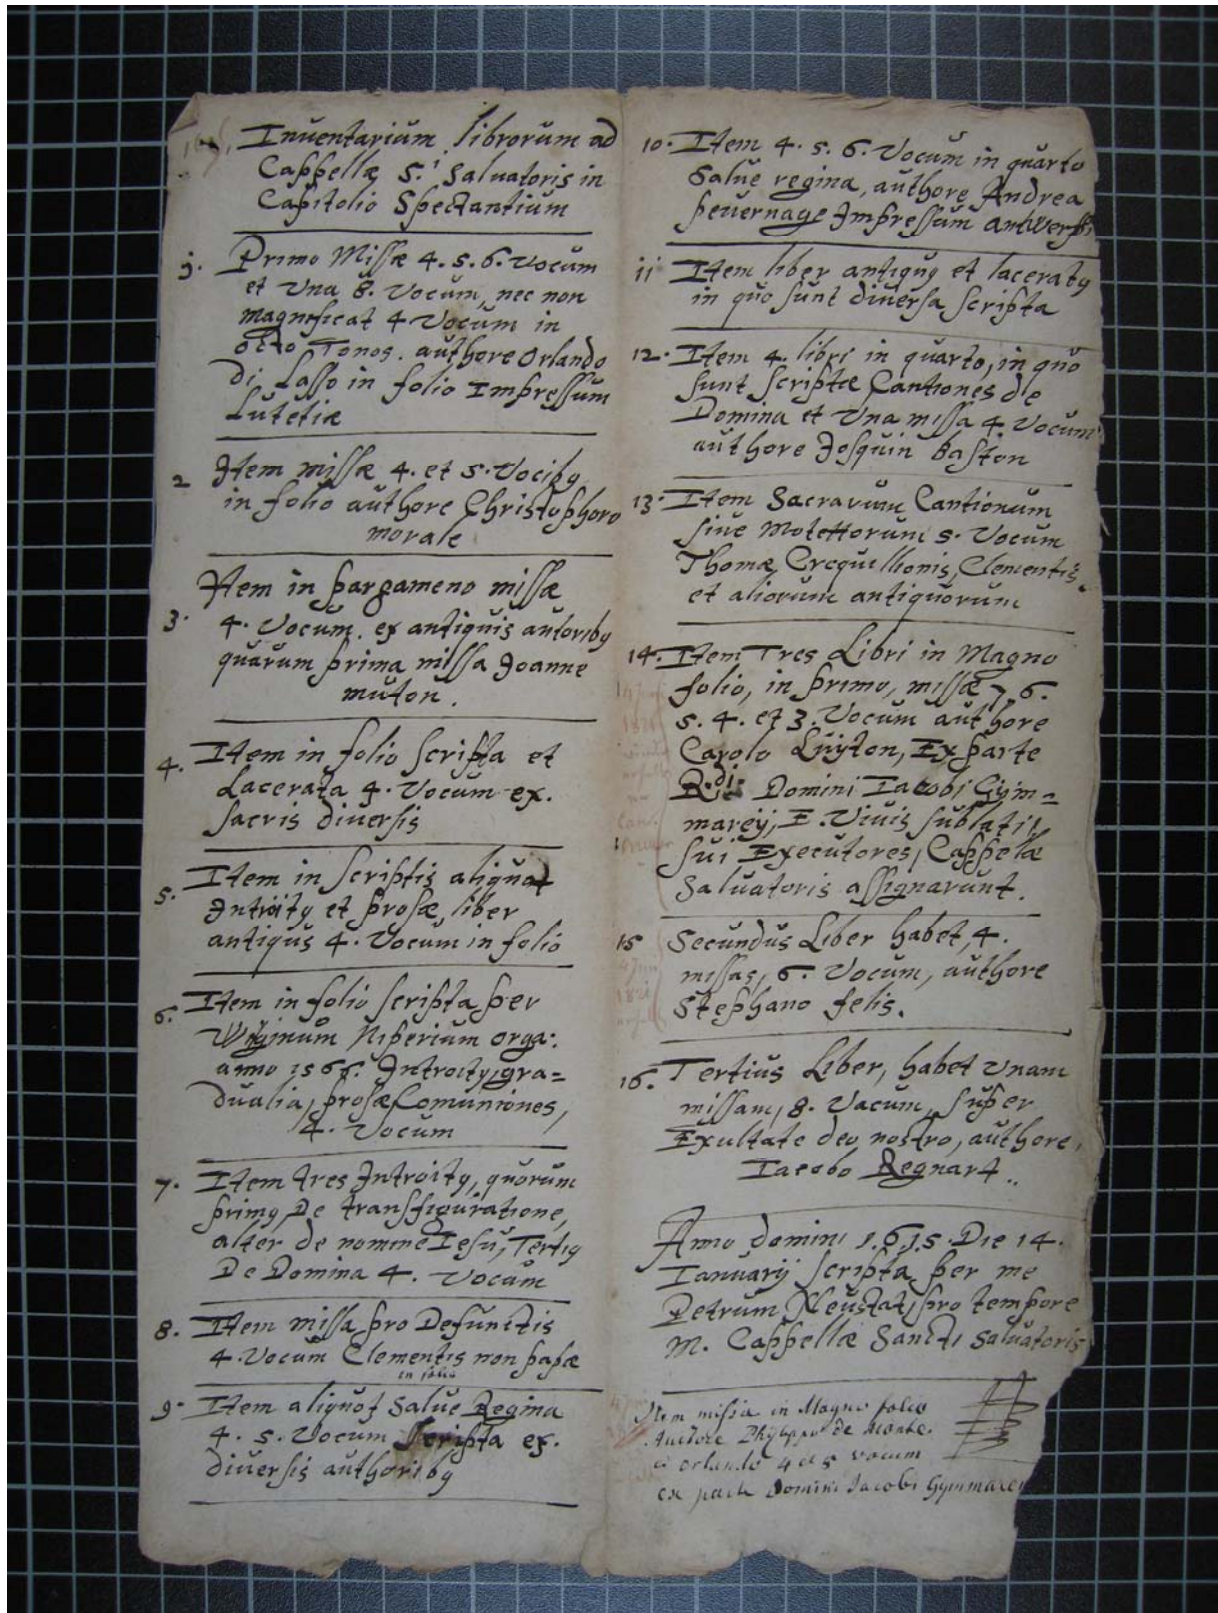 Inventarium librorum ad
Cappellæ S.i Salvatoris in
Capitolio Spectantium
j. Primo Missæ 4. 5. 6. Vocum
et Una 8. Vocum, nec non
magnificat 4 Vocum in
octo Tonos. authore Orlando
Di Lasso in folio Impressum
Lutetiæ
2 Item missæ 4. et 5. Vocibg
in folio authore Christophoro
morale
3. Item in pargameno missæ
4. Vocum. ex antiquis autoribg
quarum prima missa Joanne
muton.
4. Item in folio scripta et
Lacerata 4. Vocum ex.
sacris diversis
5. Item in scriptis aliquot
Introitg et prosæ, liber
antiqus 4. Vocum in folio
6. Item in folio scripta per
Niperium orga:
anno 1566. Introitg, gra=
dualia, prosæ Comuniones,
4. Vocum
7. Item tres Introitg, quorum
primg, De transfiguratione,
alter de nomine Iesu, Tertig
De Domina 4. Vocum
8. Item missa pro Defunctis
4. Vocum Clementis non papæ
in folio
9. Item aliquot Salue Regina
4. 5. Vocum Scripta ex.
diuersis authoribg
10. Item 4. 5. 6. Vocum in quarto
Salue regina, authore Andrea
peuernage Impressum antwerpi
ii Item liber antiqug et laceratg
in quo sunt diuersa scripta
12. Item 4. libri in quarto, in quo
sunt scriptæ Cantiones de
Domina et Una missa 4. Vocum
authore Josquin baston
13. Item Sacrarum Cantionum
siue Motettorum 5. Vocum
Thomæ Crequillionis, Clementis
et aliorum antiquorum
14. Item Tres Libri in Magno
folio, in primo, missæ 7. 6.
5. 4. et 3. Vocum authore
Carolo Luyton, Ex parte
R.di Domini Iacobi Gijm=
mareij, E. Viuis sublati,
sui Executores, Cappelæ
Saluatoris assignarunt.
15 Secundus Liber habet, 4.
missas, 6. Vocum, authore
Stephano felis.
16. Tertius Liber, habet Unam
missam, 8. Vacum, super
Exultate deo nostro, authore,
Iacobo Regnart..
Anno domini 1.6.1.5. Die 14.
Ianuarij scripta per me
Petrum Neustat, pro tempore
M. Cappellæ Sancti Saluatoris
Item missa in Magno folio
Auctore Philippo de Monte.
et Orlando 4 et 5 vocum
ex parte Domini Jacobi Gymmare